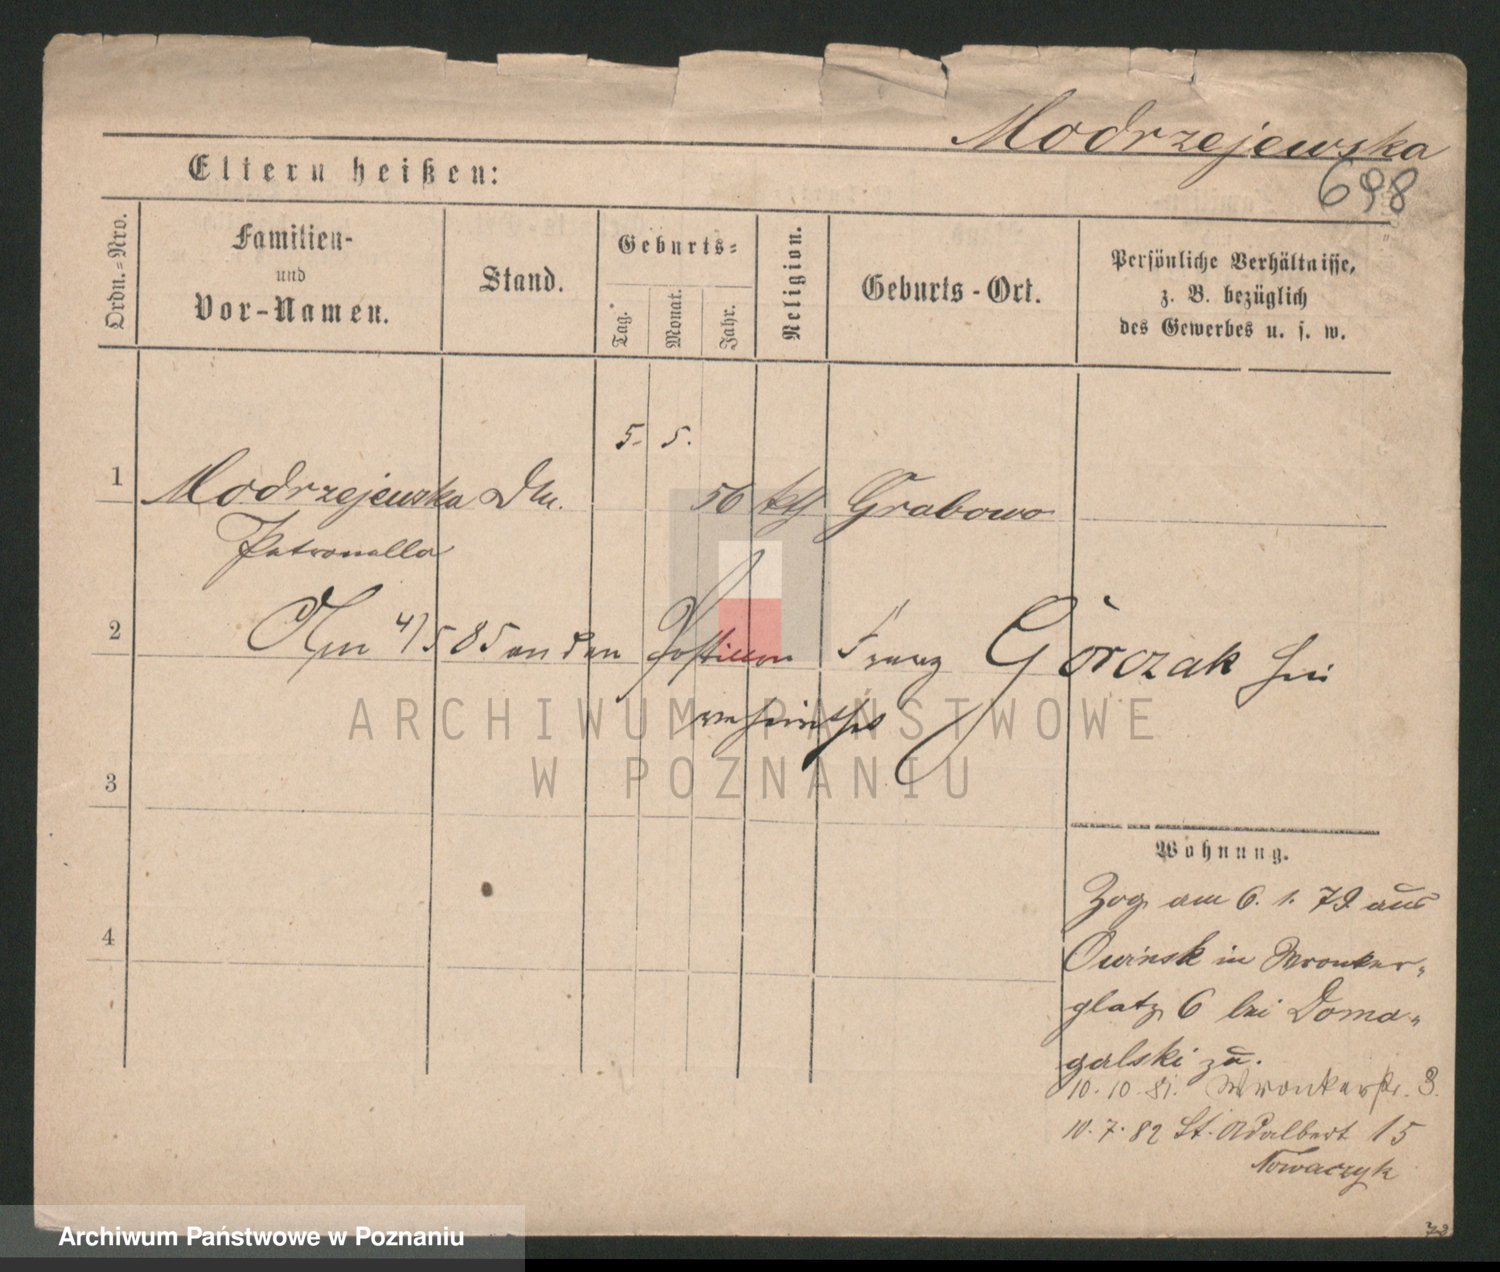 Modrzejewska
698
Eltern heißen:
Ordn.-Nro.
Familien-
und
Vor-Namen.
Stand.
Geburts-
Tag.
Monat.
Jahr.
Religion.
Geburts-Ort.
Persönliche Verhältnisse,
z. B. bezüglich
des Gewerbes u. s. w.
5. 5.
1 Modrzejewska 56 kth Grabowo
Petronella
2 4/5 85 an den Postillon Franz Górczak hier
verheirathet
ARCHIWUM PAŃSTWOWE
W POZNANIU
3
4
Wohnung.
Zog am 6. 1. 79 aus
Owinsk in Wronker-
platz 6 bei Doma-
galski zu.
10. 10. 81. Wronkerstr. 3.
10. 7. 82 St. Adalbert 15
Nowaczyk
Archiwum Państwowe w Poznaniu